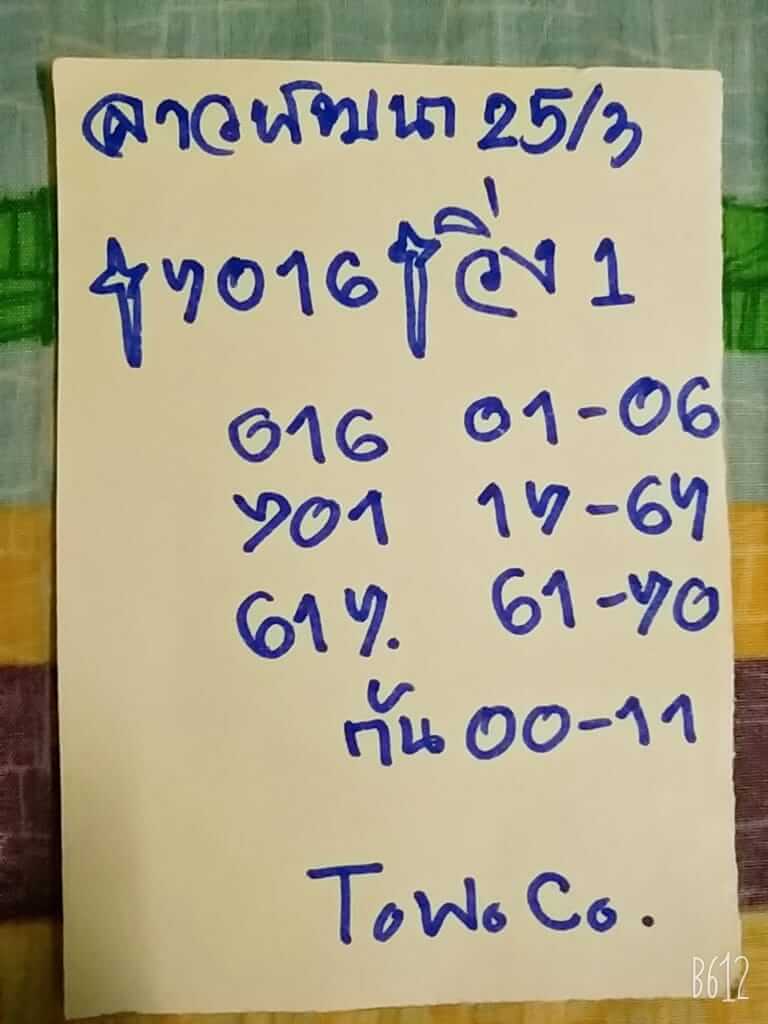 ลาวพัฒนา 25/3
7016 วิ่ง 1
016 01-06
701 17-67
617. 61-70
กัน 00-11
ToWoCo.
B612